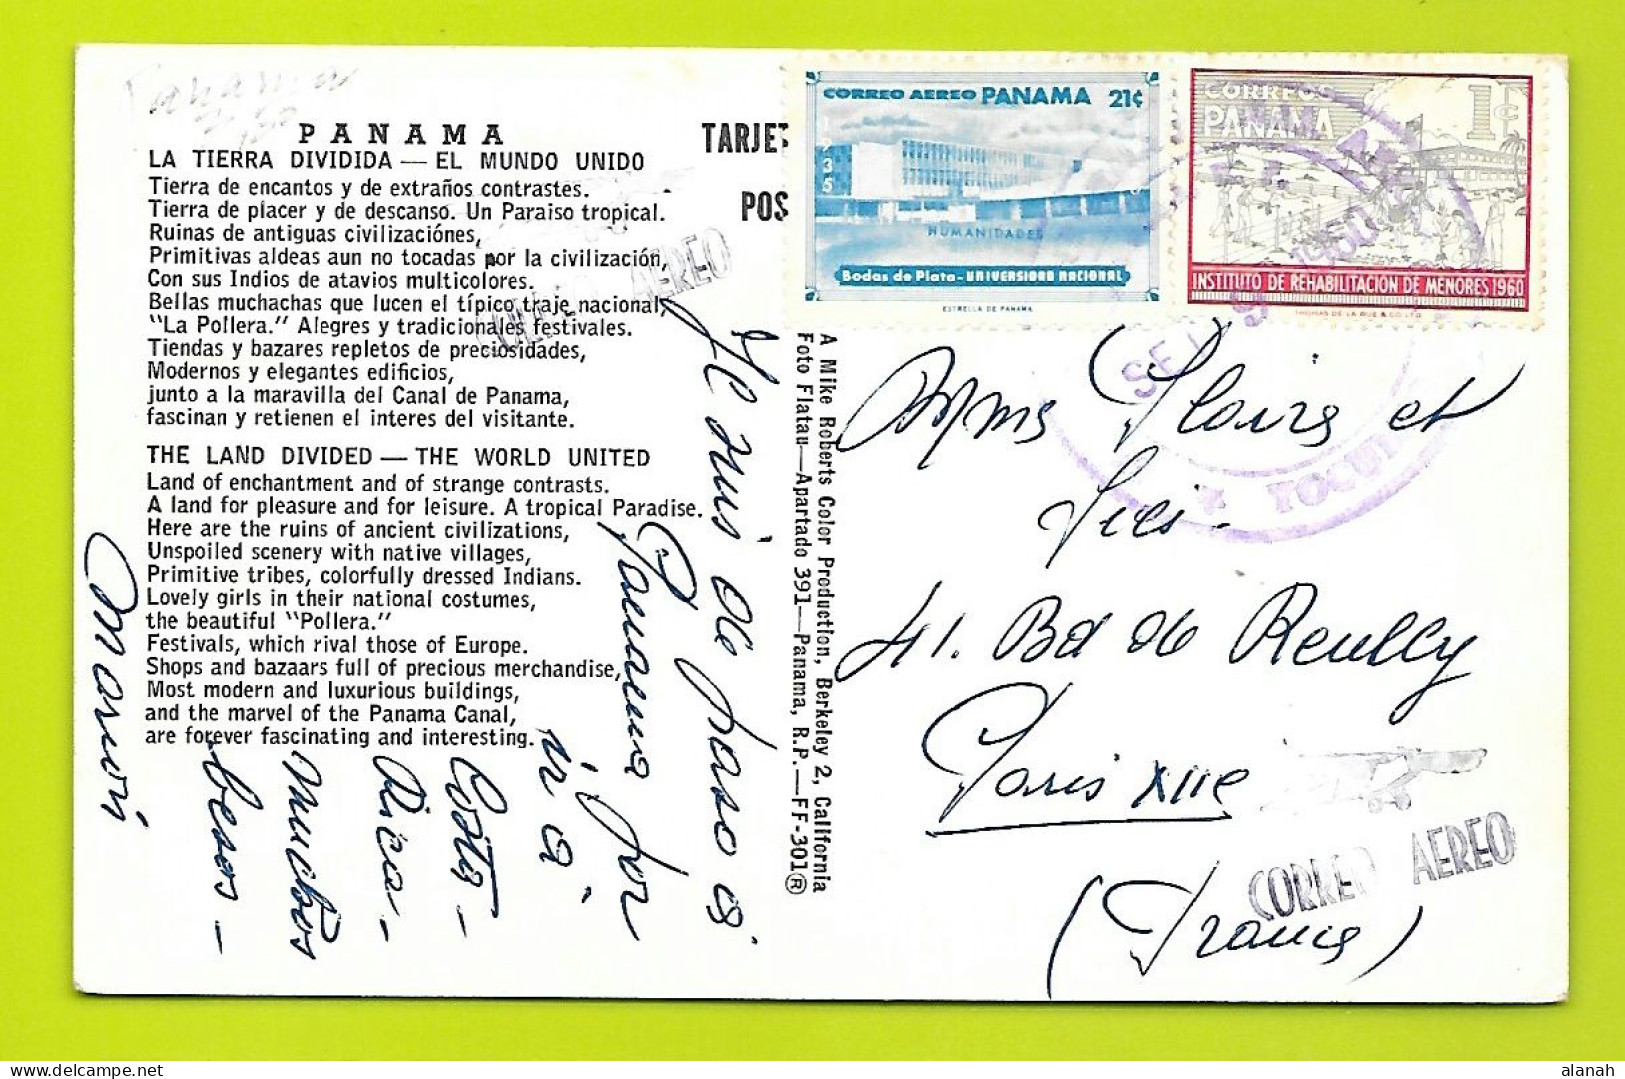 Panama
PANAMA
LA TIERRA DIVIDIDA — EL MUNDO UNIDO
Tierra de encantos y de extraños contrastes.
Tierra de placer y de descanso. Un Paraiso tropical.
Ruinas de antiguas civilizaciónes,
Primitivas aldeas aun no tocadas por la civilización,
Con sus Indios de atavios multicolores.
Bellas muchachas que lucen el típico traje nacional,
"La Pollera." Alegres y tradicionales festivales.
Tiendas y bazares repletos de preciosidades,
Modernos y elegantes edificios,
junto a la maravilla del Canal de Panama,
fascinan y retienen el interes del visitante.
THE LAND DIVIDED — THE WORLD UNITED
Land of enchantment and of strange contrasts.
A land for pleasure and for leisure. A tropical Paradise.
Here are the ruins of ancient civilizations,
Unspoiled scenery with native villages,
Primitive tribes, colorfully dressed Indians.
Lovely girls in their national costumes,
the beautiful "Pollera."
Festivals, which rival those of Europe.
Shops and bazaars full of precious merchandise,
Most modern and luxurious buildings,
and the marvel of the Panama Canal,
are forever fascinating and interesting.
CORREO AEREO
de paso
Panama por
Costa-
Rica.
muchos
besos -
TARJE
POS
A Mike Roberts Color Production, Berkeley 2, California
Foto Flatau—Apartado 391—Panama, R.P.—FF-301®
CORREO AEREO PANAMA 21¢
1935
HUMANIDADES
Bodas de Plata - UNIVERSIDAD NACIONAL
ESTRELLA DE PANAMA
CORREOS
PANAMA
1¢
INSTITUTO DE REHABILITACION DE MENORES 1960
THOMAS DE LA RUE & CO. LTD.
et
41. Bd de Reuilly
Paris XIIe
(France)
CORREO AEREO
alanah